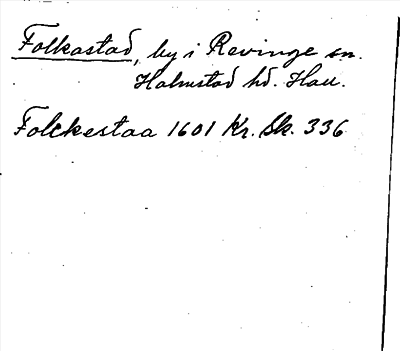 Folkastad, by i Revinge sn.
Halmstad hd. Hall.
Folckestaa 1601 Kr. Sk. 336